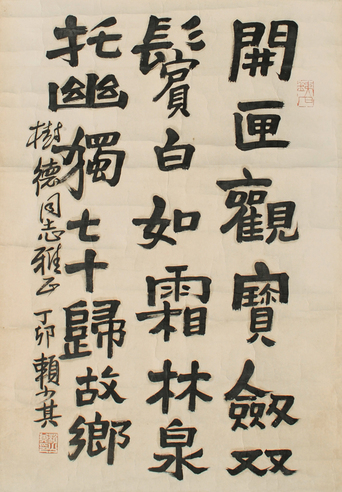 開匣觀寶劔双
鬂賓白如霜林泉
托幽獨七十歸故鄉
樹德同志雅正 丁卯 賴少其